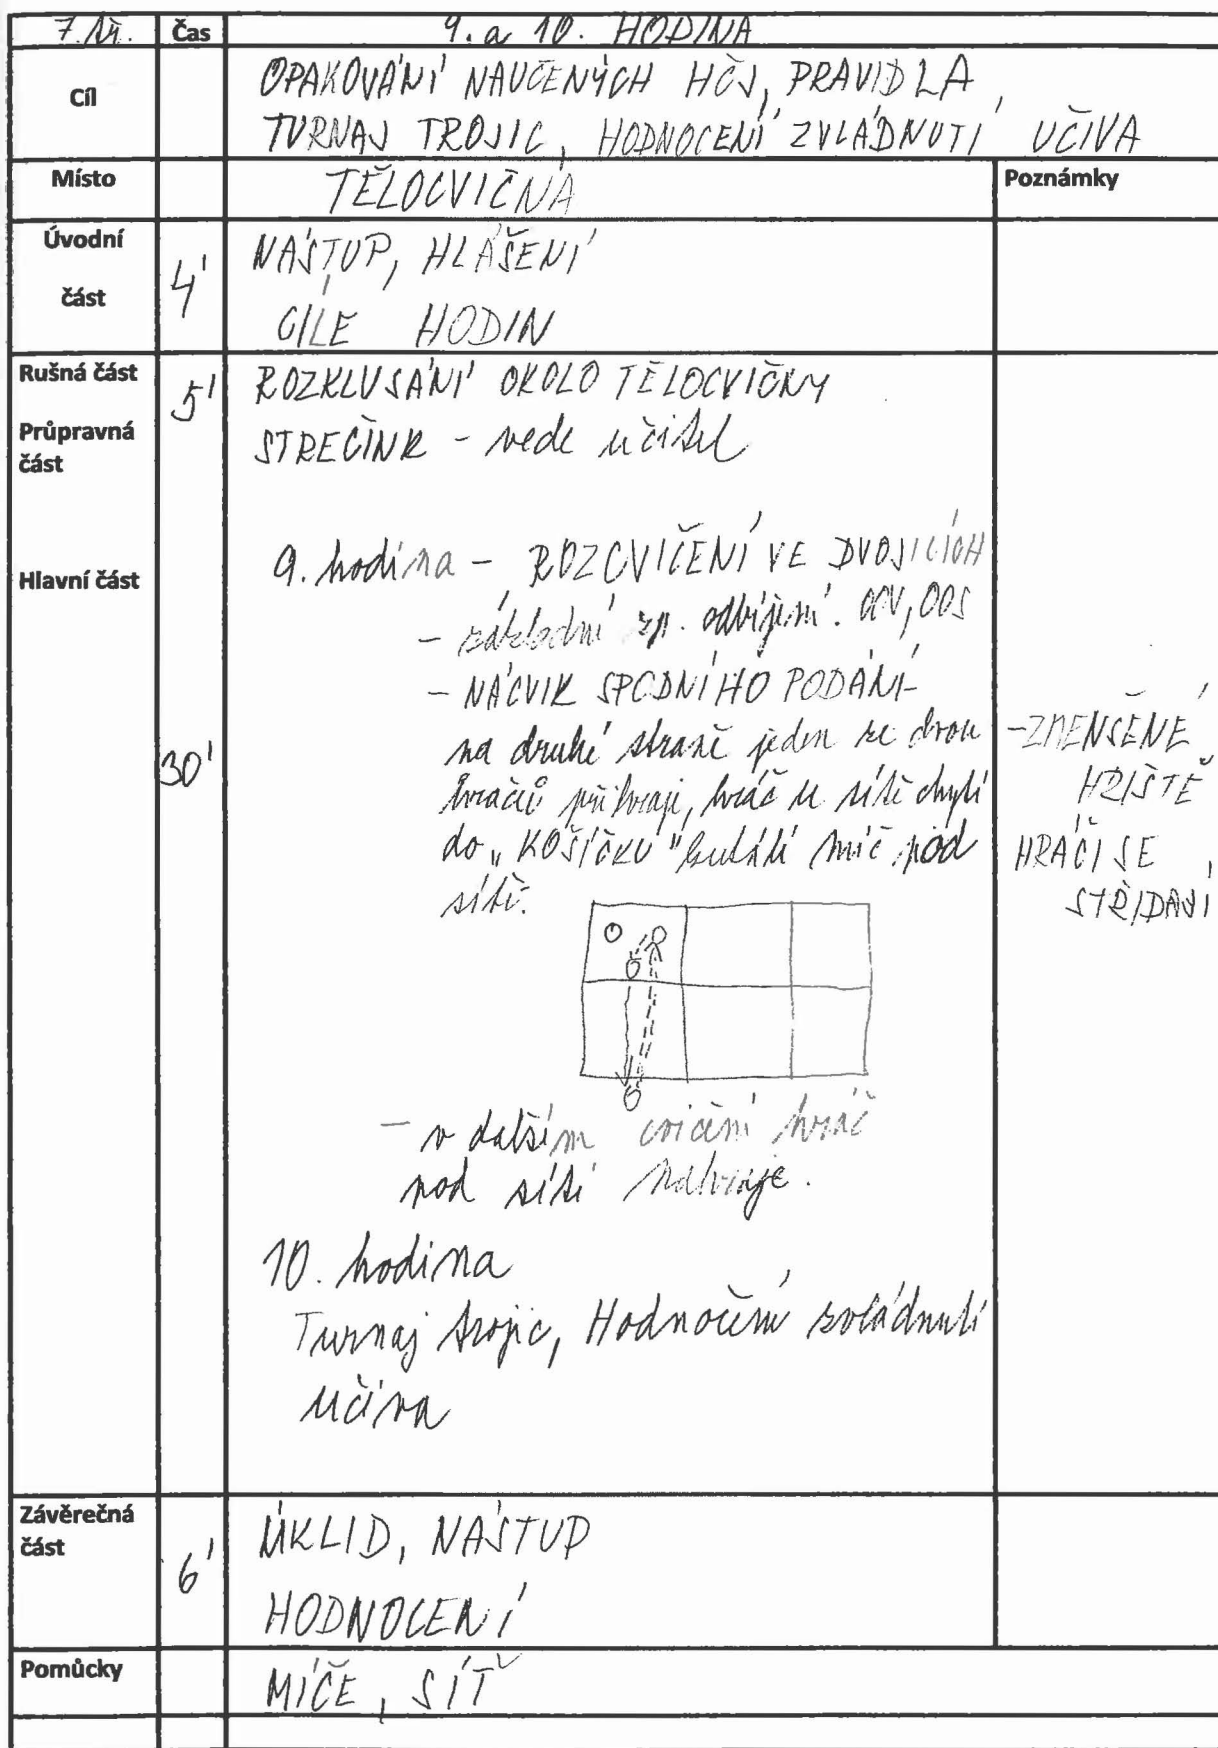 7. tř. Čas 9. a 10. HODINA
Cíl
OPAKOVÁNÍ NAUČENÝCH HČJ, PRAVIDLA,
TURNAJ TROJIC, HODNOCENÍ ZVLÁDNUTÍ UČIVA
Místo TĚLOCVIČNA Poznámky
Úvodní
část
4'
NÁSTUP, HLÁŠENÍ
CÍLE HODIN
Rušná část
Průpravná
část
5'
ROZKLUSÁNÍ OKOLO TĚLOCVIČNY
STREČINK - vede učitel
Hlavní část
30'
9. hodina - ROZCVIČENÍ VE DVOJICÍCH
- základní zp. odbíjení. OOV, OOS
- NÁCVIK SPODNÍHO PODÁNÍ -
na druhé straně jeden ze dvou
hráčů přihraje, hráč u sítě chytí
do „KOŠÍČKU" kutálí míč pod
sítě.
- v dalším cvičení hráč
pod sítí nahraje.
10. hodina
Turnaj trojic, Hodnocení zvládnutí
učiva
-ZMENŠENÉ
HŘIŠTĚ
HRÁČI SE
STŘÍDAJÍ
Závěrečná
část
6'
ÚKLID, NÁSTUP
HODNOCENÍ
Pomůcky MÍČE, SÍŤ